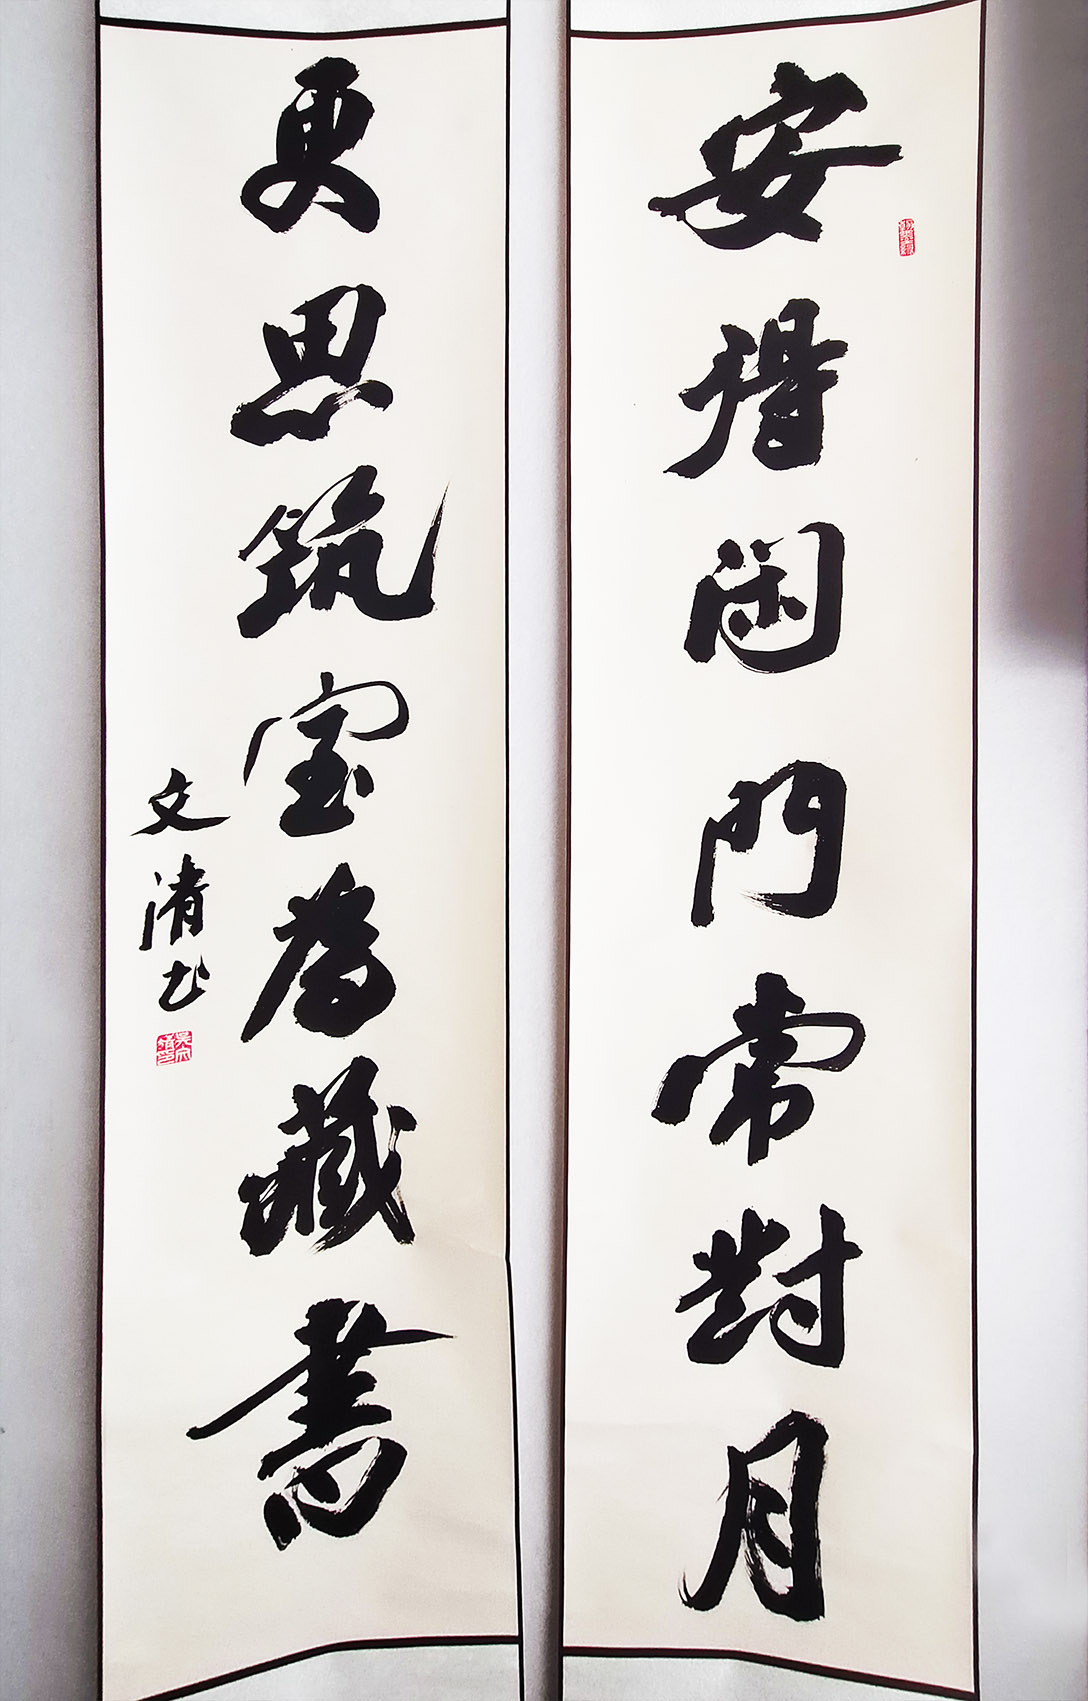 安得闲門常對月
更思筑室為藏書
文清书